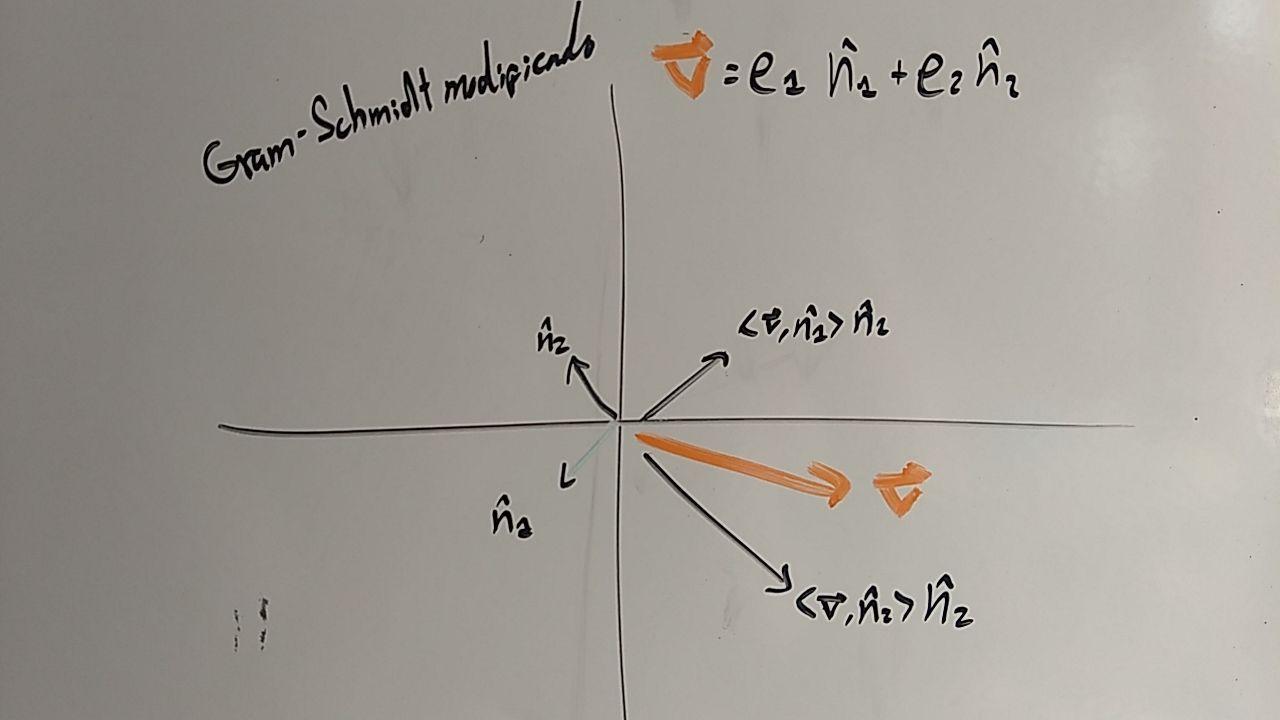 Gram-Schmidt modificado
v⃗ = e₁ n̂₁ + e₂ n̂₂
n̂₂
<v⃗, n̂₁> n̂₁
v⃗
n̂₁
<v⃗, n̂₂> n̂₂